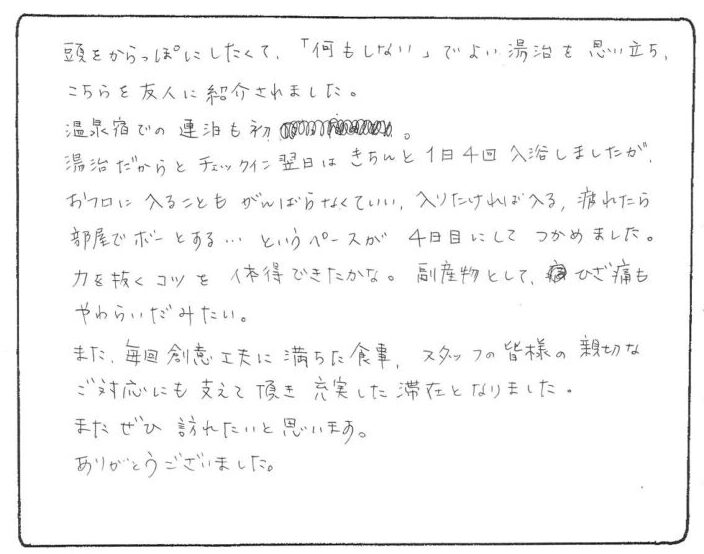 頭をからっぽにしたくて、「何もしない」でよい湯治を思い立ち、
こちらを友人に紹介されました。
温泉宿での連泊も初 。
湯治だからとチェックイン翌日はきちんと1日4回入浴しましたが、
おフロに入ることもがんばらなくていい、入りたければ入る、疲れたら
部屋でボーとする… というペースが 4日目にして つかめました。
力を抜くコツを 体得できたかな。副産物として、ひざ痛も
やわらいだみたい。
また、毎回創意工夫に満ちた食事、スタッフの皆様の親切な
ご対応にも支えて頂き 充実した滞在となりました。
またぜひ訪れたいと思います。
ありがとうございました。